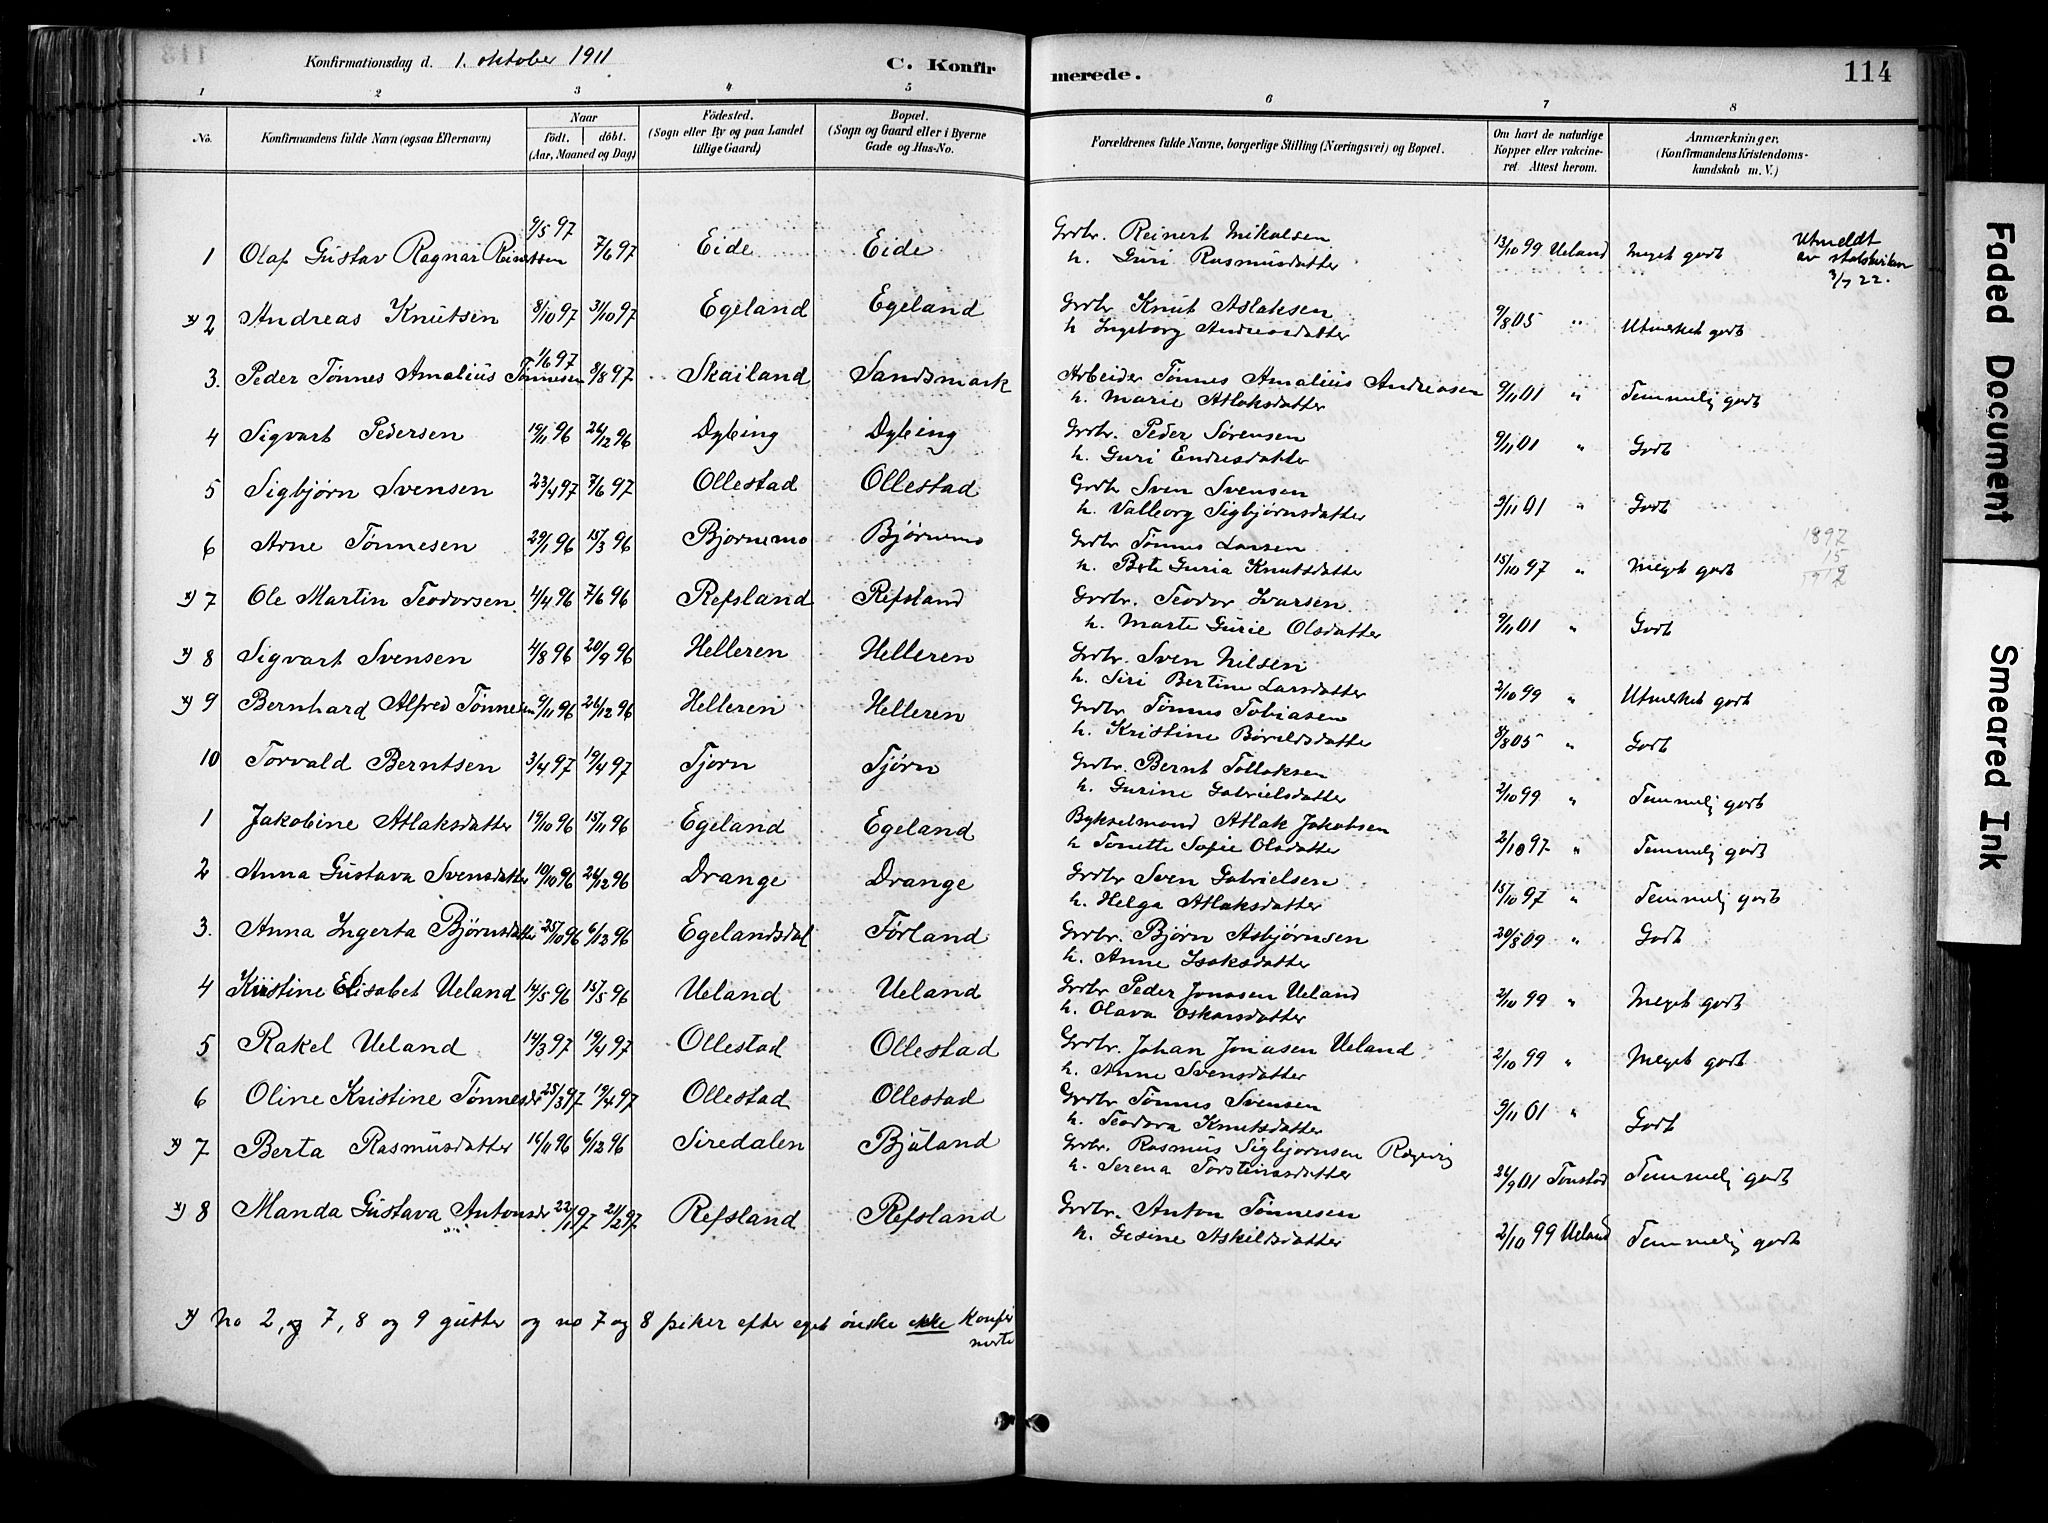 Konfirmationsdag d. 1. oktober 1911
C. Konfirmerede.
114
1 2 3 4 5 6 7 8
No.
Konfirmandens fulde Navn (ogsaa Efternavn)
Naar
födt. döbt.
(Aar, Maaned og Dag)
Födested.
(Sogn eller By og paa Landet
tillige Gaard)
Bopæl.
(Sogn og Gaard eller i Byerne
Gade og Hus-No.
Forældrenes fulde Navne, borgerlige Stilling (Næringsvei) og Bopæl.
Om havt de naturlige
Kopper eller vakcine-
ret. Attest herom.
Anmærkninger.
(Konfirmandens Kristendoms-
kundskab m. V.)
1 Olaf Gustav Ragnar Reinertsen 9/5 97 7/6 97 Eide Eide Grdbr. Reinert Mikalsen h. Guri Rasmusdatter 13/10 99 Ueland Meget godt Utmeldt av statskirken 3/7 22.
x) 2 Andreas Knutsen 8/10 97 31/10 97 Egeland Egeland Grdbr Knut Aslaksen h Ingeborg Andreasdatter 9/8 05 " Utmerket godt
3. Peder Tønnes Amalius Tønnesen 1/6 97 8/8 97 Skailand Sandsmark Arbeider Tønnes Amalius Andreasen h. Marie Atlaksdatter 9/11 01 " Temmelig godt
4 Sigvart Pedersen 19/11 96 26/12 96 Dybing Dybing Grdbr. Peder Sørensen h. Guri Endresdatter 9/11 01 " Godt
5 Sigbjørn Svensen 23/4 97 7/6 97 Ollestad Ollestad Grdbr Sven Svensen h. Valborg Sigbjørnsdatter 2/11 01 " Godt
6 Arne Tønnesen 29/1 96 15/3 96 Bjørnemo Bjørnemo Grdbr Tønnes Larsen h. Berte Guria Knutsdatter 15/10 97 " Meget godt
1897
15
1912
x) 7 Ole Martin Teodorsen 4/4 96 7/6 96 Refsland Refsland Grdbr. Teodor Ivarsen h. Marte Gurie Olsdatter 9/11 01 " Godt
x) 8 Sigvart Svensen 4/8 96 20/9 96 Helleren Helleren Grdbr. Sven Nilsen h. Siri Bertine Larsdatter 2/10 99 " Utmerket godt
x) 9 Bernhard Alfred Tønnesen 9/11 96 26/12 96 Helleren Helleren Grdbr Tønnes Tobiasen h. Kristine Børildsdatter 8/8 05 " Godt
10 Torvald Berntsen 3/4 97 19/4 97 Tjorn Tjørn Grdbr. Bernt Tollaksen h. Gurine Gabrielsdatter 2/10 99 " Temmelig godt
1 Jakobine Atlaksdatter 19/10 96 15/11 96 Egeland Egeland Bykselmand Atlak Jakobsen h Tonette Sofie Olsdatter 2/10 97 " Temmelig godt
2 Anna Gustava Svensdatter 10/10 96 26/12 96 Drange Drange Grdbr Sven Gabrielsen h. Helga Atlaksdatter 15/10 97 " Temmelig godt
3. Anna Ingerta Bjørnsdatter 25/10 96 6/12 96 Egelandsdal Førland Grdbr. Bjørn Asbjørnsen h. Anne Isaksdatter 20/8 09 " Godt
4 Kristine Elisabet Ueland 14/5 96 15/5 96 Ueland Ueland Grdbr Peder Jonasen Ueland h. Olava Oskarsdatter 2/10 99 " Meget godt
5 Rakel Ueland 14/3 97 19/4 97 Ollestad Ollestad Grdbr. Johan Jonasen Ueland h. Anne Svensdatter 2/10 99 " Meget godt
6 Oline Kristine Tønnesdr 25/3 97 19/4 97 Ollestad Ollestad Grdbr Tønnes Svensen h. Teodora Knutsdatter 9/11 01 " Godt
x) 7 Berta Rasmusdatter 16/11 96 6/12 96 Siredalen Bjuland Grdbr. Rasmus Sigbjørnsen h. Serena Torsteinsdatter 26/9 01 Tonstad Temmelig godt
x) 8 Manda Gustava Antonsdr 22/1 97 21/2 97 Refsland Refsland Grdbr. Anton Tønnesen h. Gesine Askildsdatter 2/10 99 Ueland Temmelig godt
x) No 2, og 7, 8 og 9 gutter og no 7 og 8 piker efter eget önske ikke Konfirmerte
Faded Document
Smeared Ink